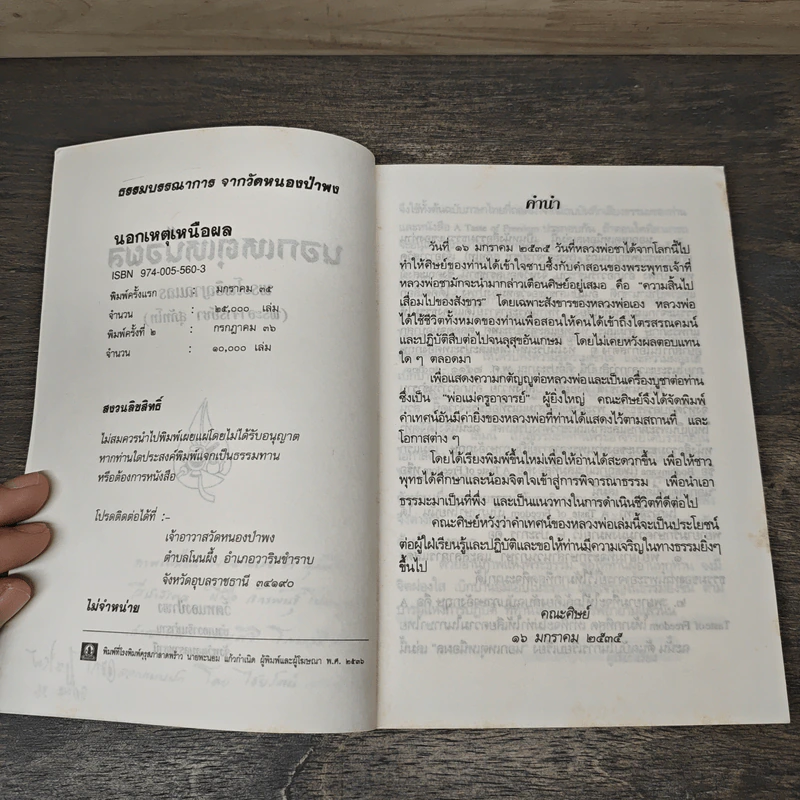 ธรรมบรรณาการ จากวัดหนองป่าพง
นอกเหตุเหนือผล
ISBN 974-005-560-3
พิมพ์ครั้งแรก : มกราคม ๓๕
จำนวน : ๒๕,๐๐๐ เล่ม
พิมพ์ครั้งที่ ๒ : กรกฎาคม ๓๖
จำนวน : ๑๐,๐๐๐ เล่ม
สงวนลิขสิทธิ์
ไม่สมควรนำไปพิมพ์เผยแผ่โดยไม่ได้รับอนุญาต
หากท่านใดประสงค์พิมพ์แจกเป็นธรรมทาน
หรือต้องการหนังสือ
โปรดติดต่อได้ที่ :-
เจ้าอาวาสวัดหนองป่าพง
ตำบลโนนผึ้ง อำเภอวารินชำราบ
จังหวัดอุบลราชธานี ๓๔๑๙๐
ไม่จำหน่าย
พิมพ์ที่โรงพิมพ์คุรุสภาลาดพร้าว นายพะนอม แก้วกำเนิด ผู้พิมพ์และผู้โฆษณา พ.ศ. ๒๕๓๖
คำนำ
วันที่ ๑๖ มกราคม ๒๕๓๕ วันที่หลวงพ่อชาได้จากโลกนี้ไป
ทำให้ศิษย์ของท่านได้เข้าใจซาบซึ้งกับคำสอนของพระพุทธเจ้าที่
หลวงพ่อชามักจะนำมากล่าวเตือนศิษย์อยู่เสมอ คือ "ความสิ้นไป
เสื่อมไปของสังขาร" โดยเฉพาะสังขารของหลวงพ่อเอง หลวงพ่อ
ได้ใช้ชีวิตทั้งหมดของท่านเพื่อสอนให้คนได้เข้าถึงไตรสรณคมน์
และปฏิบัติสืบต่อไปจนลุสุขอันเกษม โดยไม่เคยหวังผลตอบแทน
ใด ๆ ตลอดมา
เพื่อแสดงความกตัญญูต่อหลวงพ่อและเป็นเครื่องบูชาต่อท่าน
ซึ่งเป็น "พ่อแม่ครูอาจารย์" ผู้ยิ่งใหญ่ คณะศิษย์จึงได้จัดพิมพ์
คำเทศน์อันมีค่ายิ่งของหลวงพ่อที่ท่านได้แสดงไว้ตามสถานที่ และ
โอกาสต่าง ๆ
โดยได้เรียงพิมพ์ขึ้นใหม่เพื่อให้อ่านได้สะดวกขึ้น เพื่อให้ชาว
พุทธได้ศึกษาและน้อมจิตใจเข้าสู่การพิจารณาธรรม เพื่อนำเอา
ธรรมะมาเป็นที่พึ่ง และเป็นแนวทางในการดำเนินชีวิตที่ดีต่อไป
คณะศิษย์หวังว่าคำเทศน์ของหลวงพ่อเล่มนี้จะเป็นประโยชน์
ต่อผู้ใฝ่เรียนรู้และปฏิบัติและขอให้ท่านมีความเจริญในทางธรรมยิ่งๆ
ขึ้นไป
คณะศิษย์
๑๖ มกราคม ๒๕๓๕